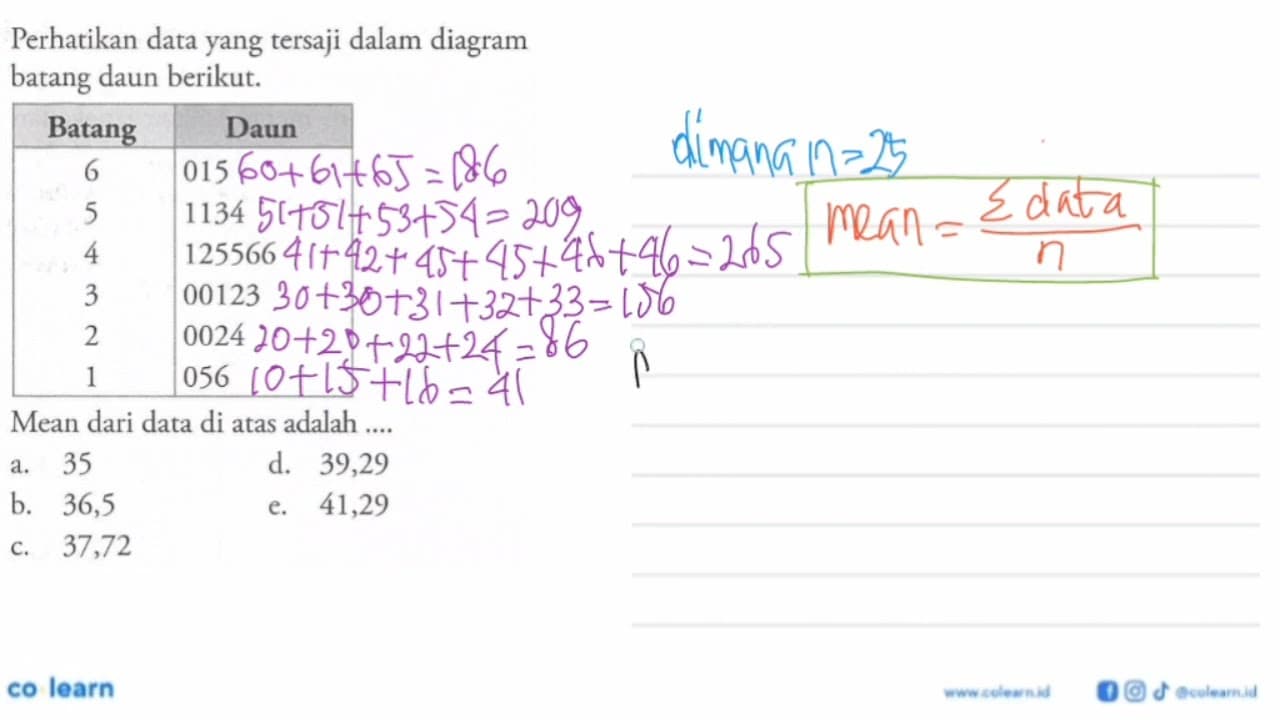 Perhatikan data yang tersaji dalam diagram
batang daun berikut.
Batang Daun
6 015 60+61+65=186
5 1134 51+51+53+54=209
4 125566 41+42+45+45+46+46=265
3 00123 30+30+31+32+33=156
2 0024 20+20+22+24=86
1 056 10+15+16=41
Mean dari data di atas adalah ....
a. 35 d. 39,29
b. 36,5 e. 41,29
c. 37,72
dimana n=25
mean = Σ data
n
co learn
www.colearn.id @colearn.id